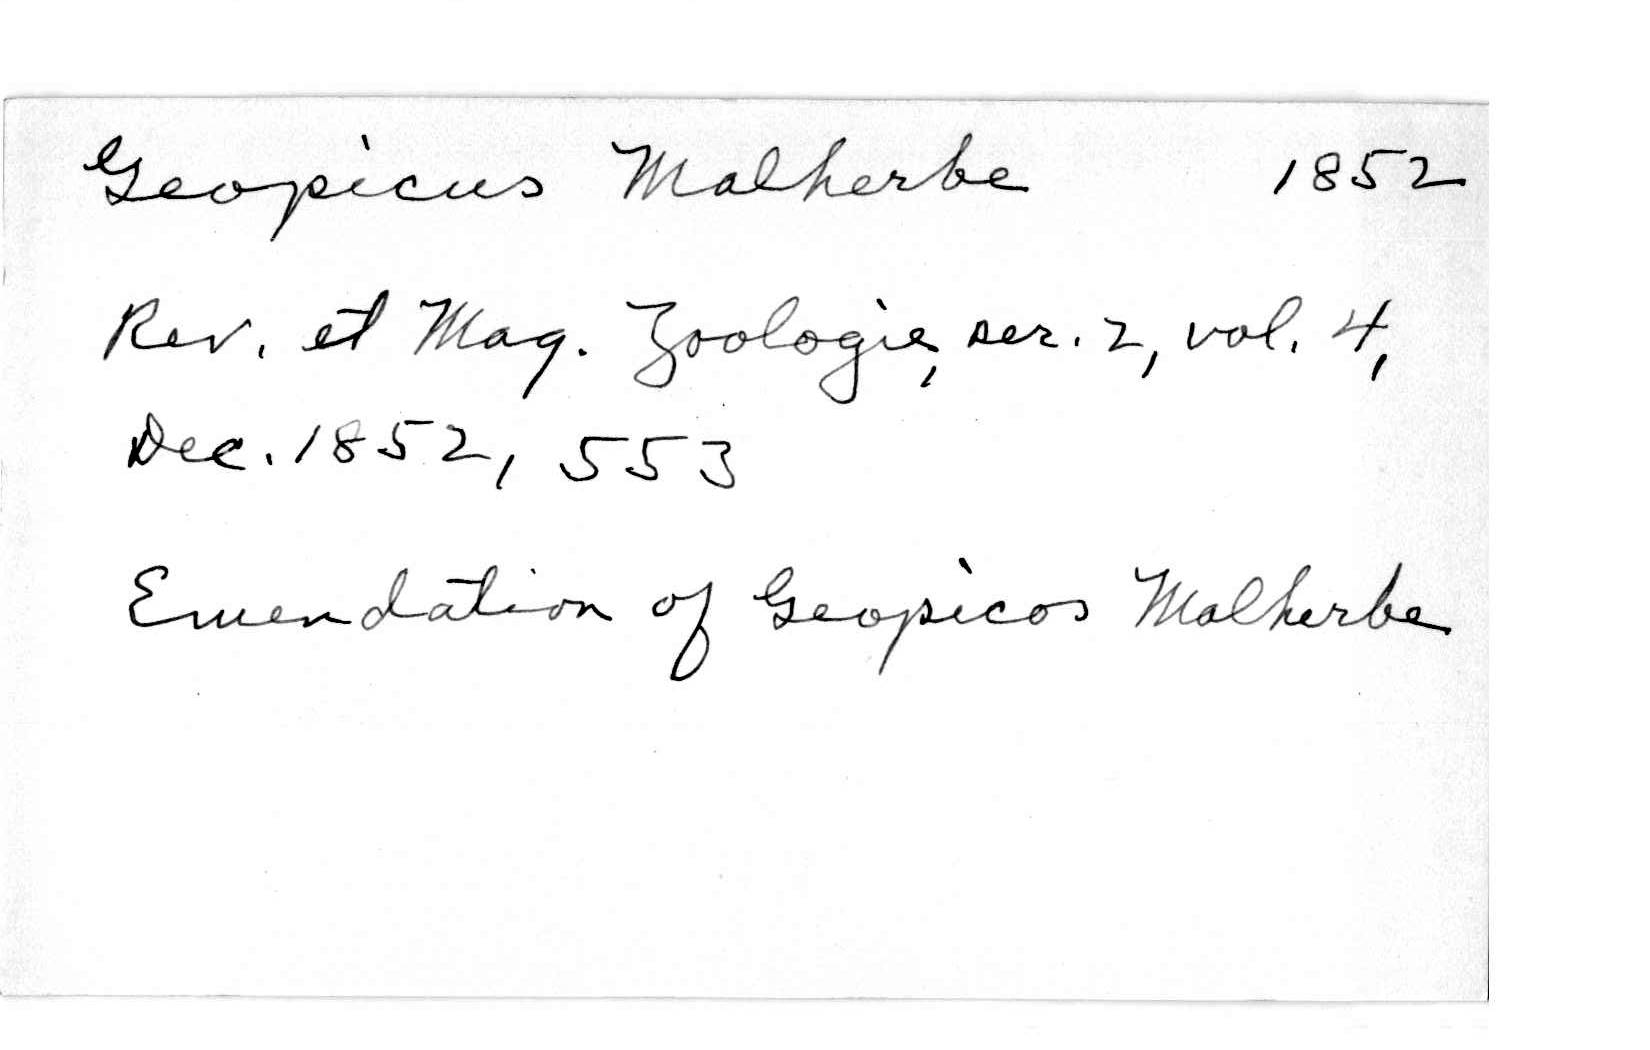 Geopicus Malherbe 1852
Rev. et Mag. Zoologie, ser. 2, vol. 4,
Dec. 1852, 553
Emendation of Geopicos Malherbe